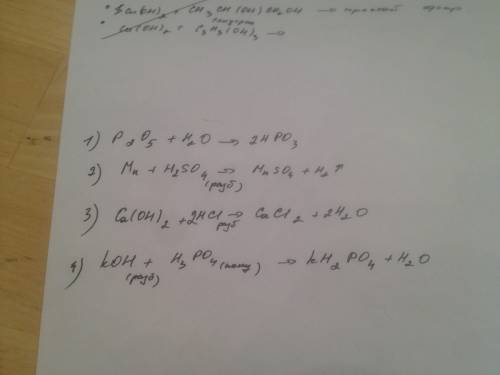 Cu(OH)2 + CH3CH(OH)CH2OH →
Cu(OH)2 + C3H5(OH)3 →
1) P2O5 + H2O → 2HPO3
2) Mn + H2SO4 (разб) → MnSO4 + H2↑
3) Ca(OH)2 + 2HCl разб → CaCl2 + 2H2O
4) KOH (разб) + H3PO4 (конц) → KH2PO4 + H2O